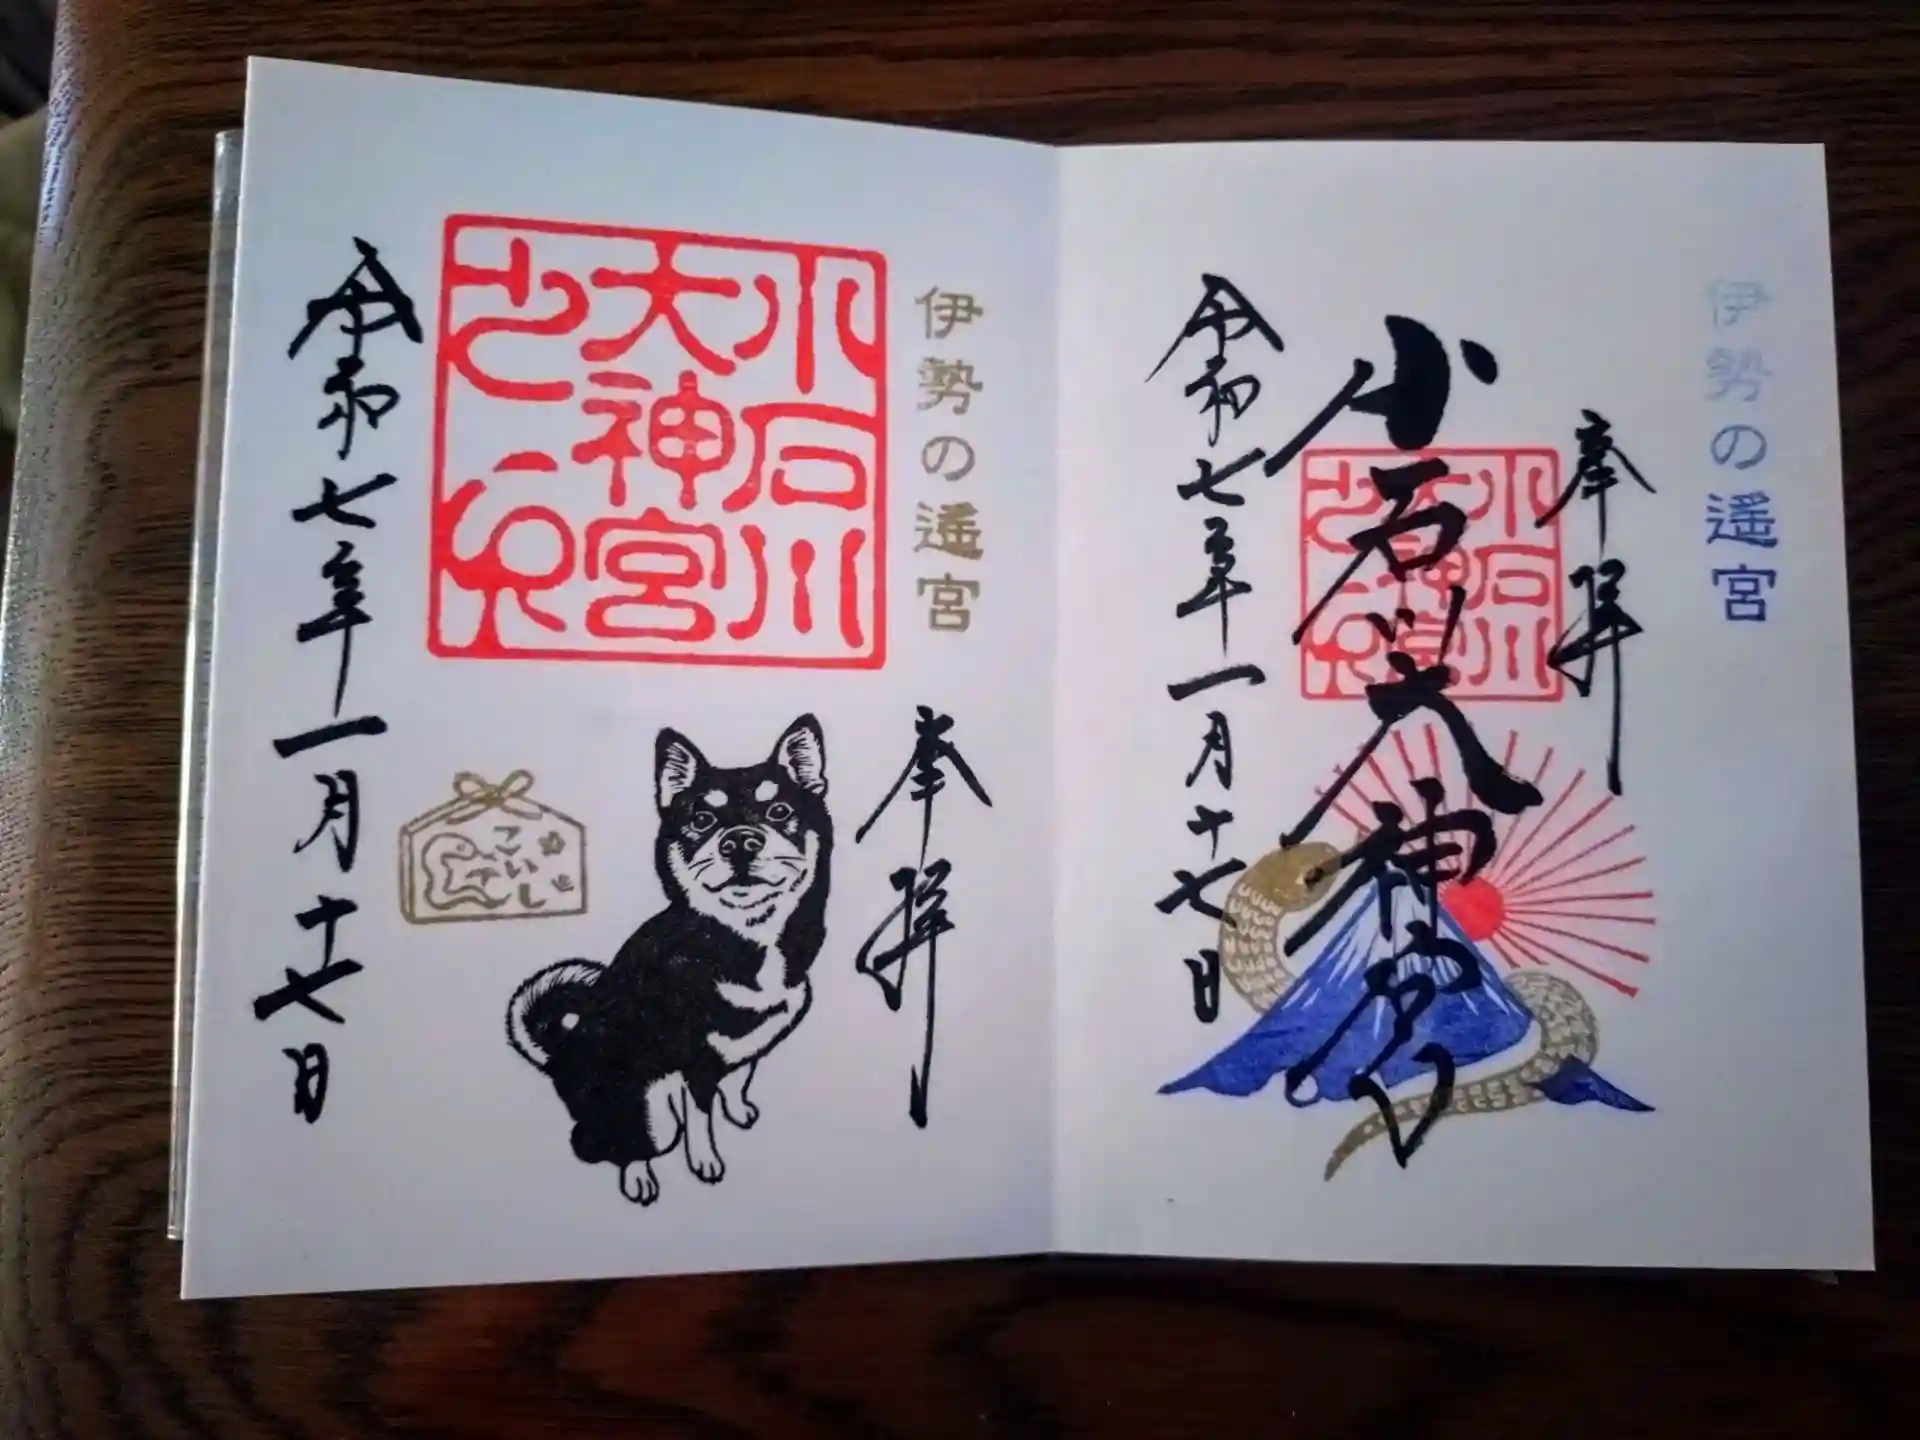 伊勢の遥宮
奉拝
小石川大神宮
小石川大神宮之印
令和七年一月十七日
伊勢の遥宮
奉拝
小石川大神宮之印
こいし
令和七年一月十七日